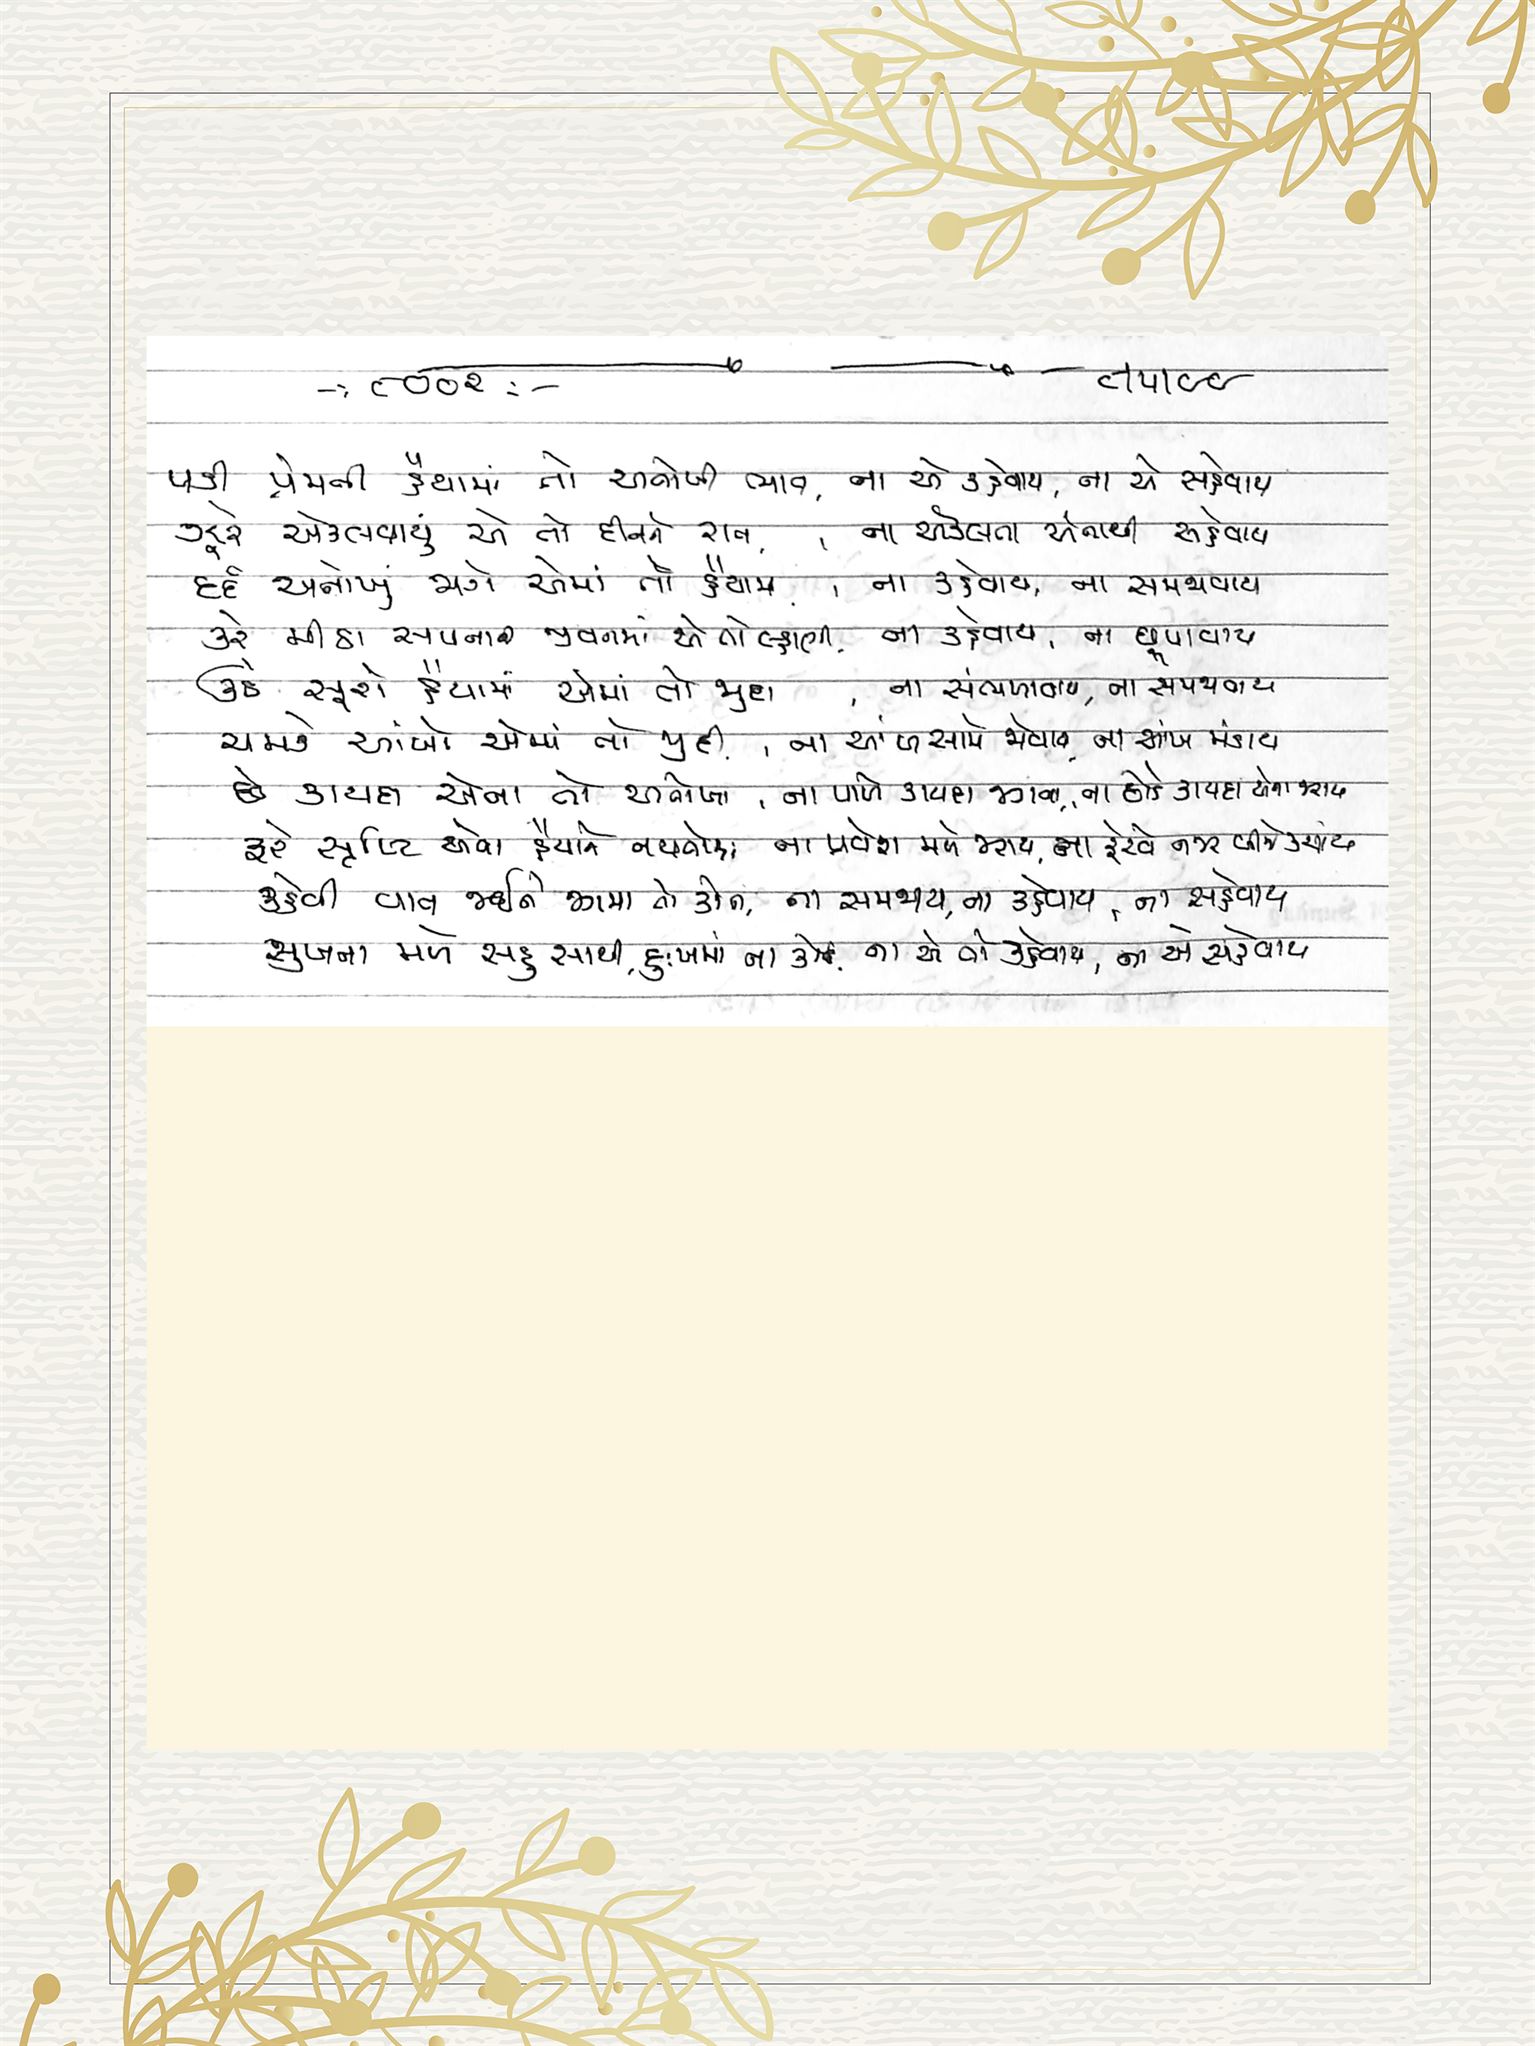 -: ૯૦૦૨ :- તપાવવ
પડી પ્રેમની હૈયામાં તો અનોખી ભાત, ના એ કહેવાય, ના એ સહેવાય
ઝૂરે એકલવાયું એ તો દીનને રાત, ના એકલતા એનાથી સહેવાય
દર્દ અનોખું જાગે એમાં તો હૈયામાં, ના કહેવાય, ના સમજાવાય
કરે મીઠા સપનાના જીવનમાં એ તો લ્હાણી, ના કહેવાય, ના છૂપાવાય
ઉઠે સૂરો હૈયામાં એમાં તો જુદા, ના સંભળાવાય, ના સમજાવાય
ચમકે આંખો એમાં તો જુદી, ના આંખ સામે જોવાય, ના આંખ મંડાય
છે કાયદા એના તો અનોખા, ના પાળે કાયદા ઝાઝા, ના કોઈ કાયદા એના જરાય
કરે સૃષ્ટિ એવા હૈયાને નયનોમાં ના પ્રવેશ મળે જરાય, ના ફેરવે નજર બીજે ક્યાંય
કહેવી વાત જઈને એમાં તો કોને, ના સમજાય, ના કહેવાય, ના સહેવાય
સુખના મળે સહુ સાથી, દુઃખમાં ના કોઈ, ના એ તો કહેવાય, ના એ સહેવાય